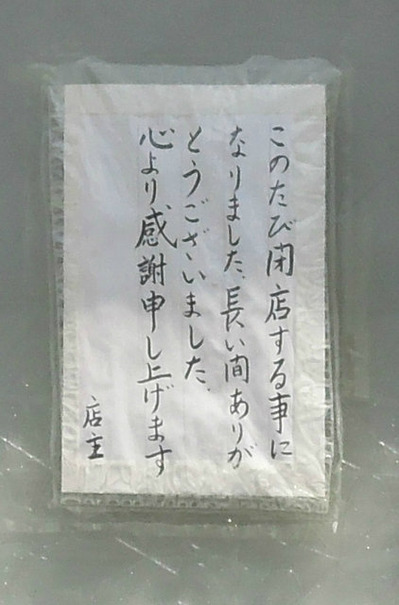 このたび閉店する事に
なりました、長い間ありが
とうございました、
心より、感謝申し上げます
店主